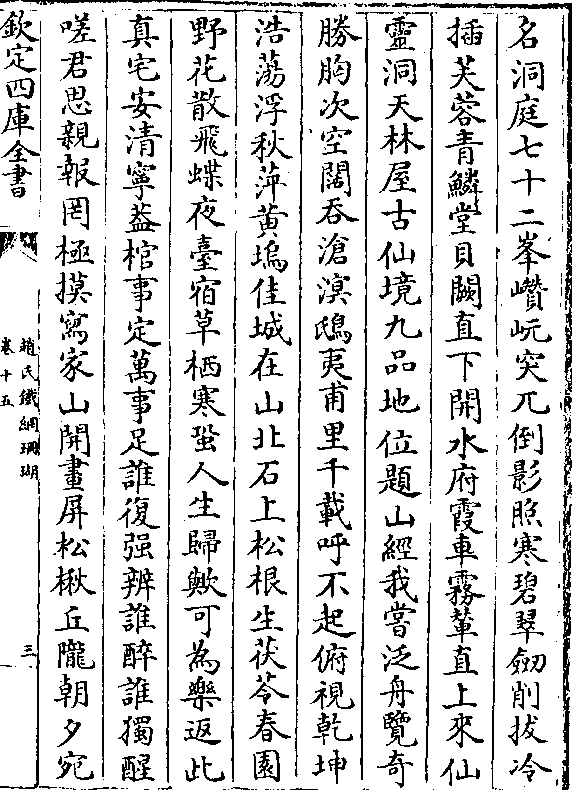 名洞庭七十二峯巑岏突兀倒影照寒碧翠劒削拔冷
插芙蓉青鱗堂貝闕直下開水府霞車霧輦直上來仙
靈洞天林屋古仙境九品地位題山經我嘗泛舟覽奇
勝胸次空闊吞滄溟鴟夷甫里千載呼不起俯視乾坤
浩蕩浮秋萍黄塢佳城在山北石上松根生茯苓春園
野花散飛蝶夜臺宿草栖寒螀人生歸歟可為樂返此
真宅安清寧葢棺事定萬事足誰復强辨誰醉誰獨醒
嗟君思親報罔極摸寫家山開畫屏松楸丘隴朝夕宛
欽定四庫全書
趙氏鐵網珊瑚
卷十五
三